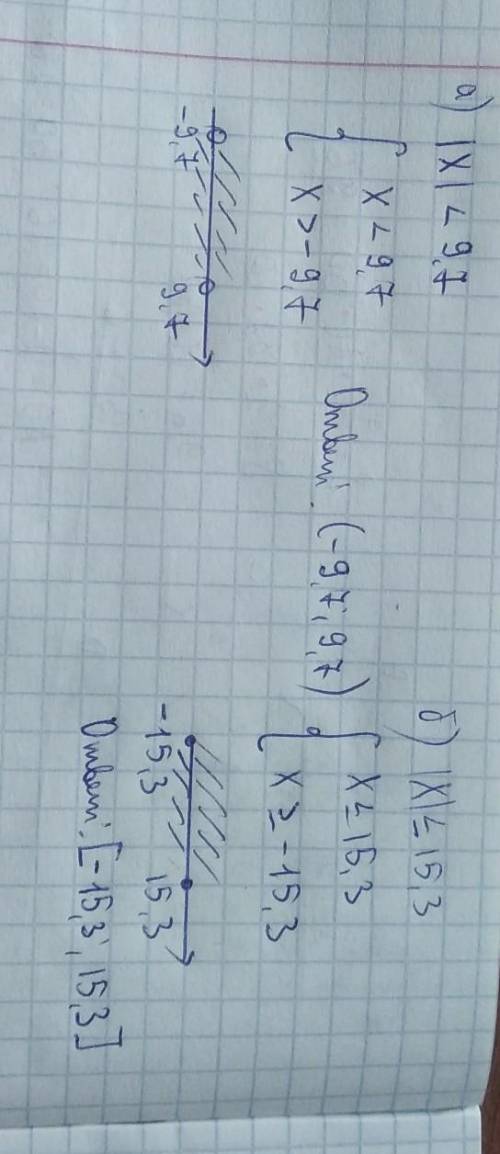 а) |x| < 9,7
x < 9,7
x > -9,7
-9,7 9,7
Ответ: (-9,7; 9,7)
б) |x| ≤ 15,3
x ≤ 15,3
x ≥ -15,3
-15,3 15,3
Ответ: [-15,3; 15,3]